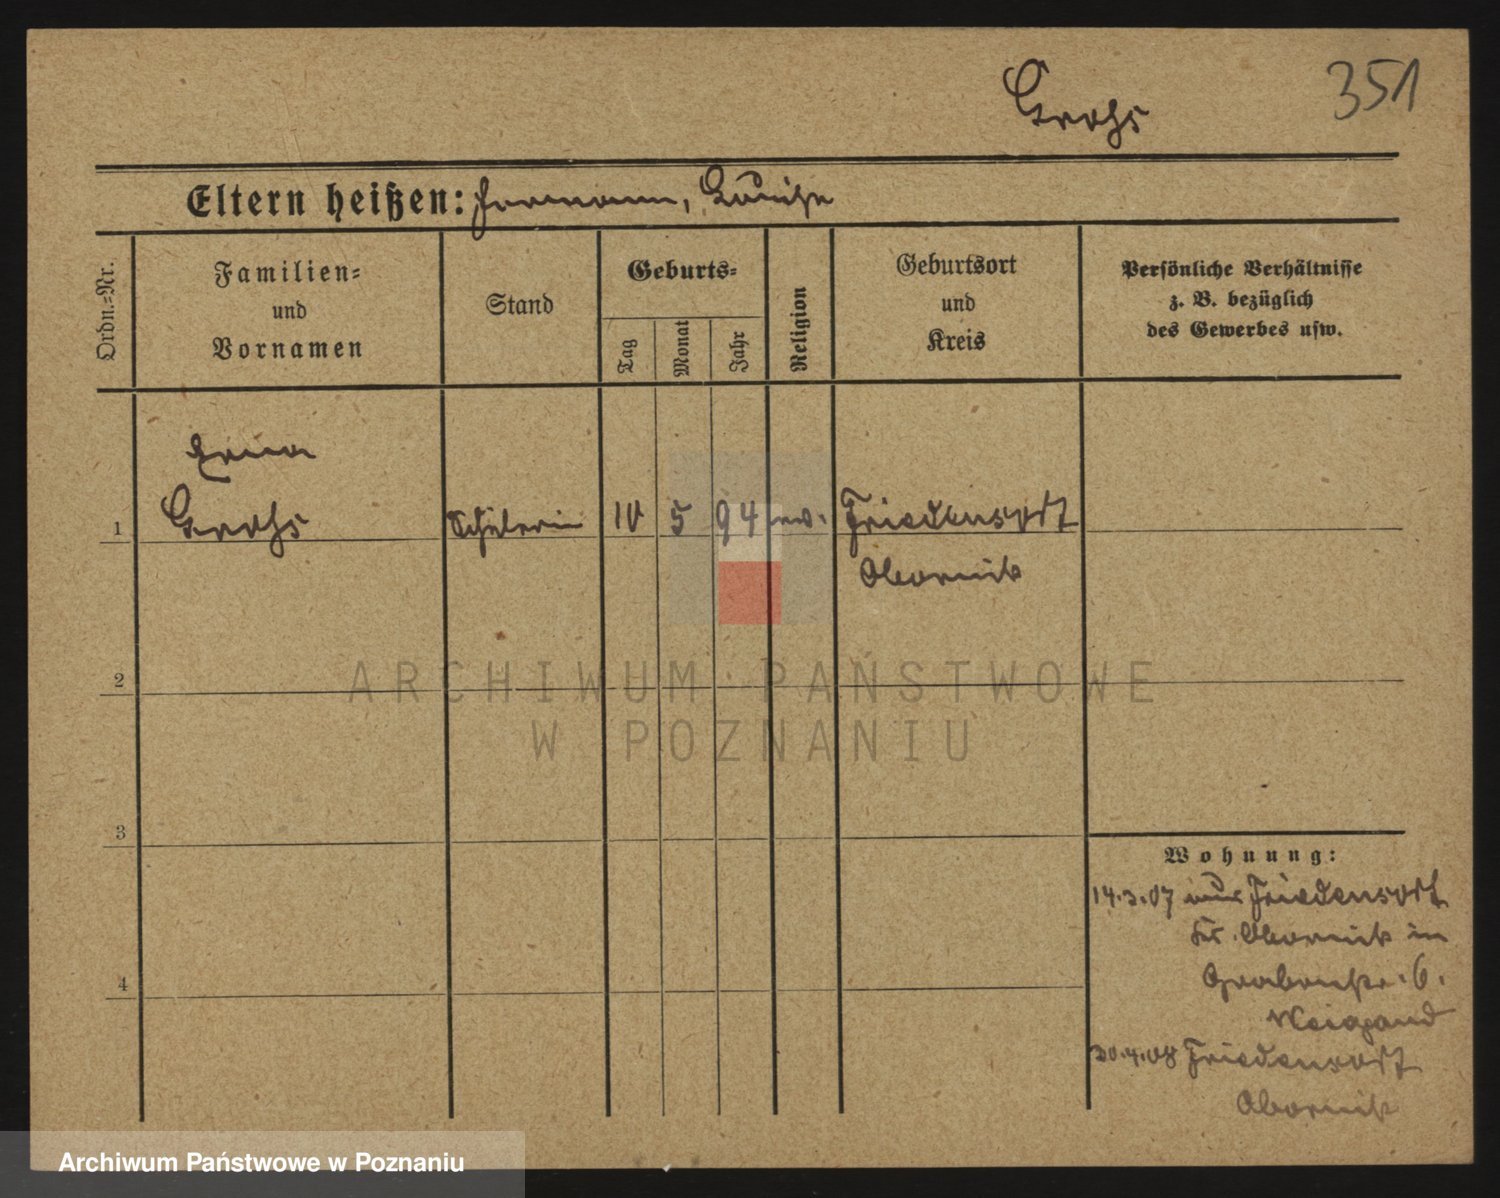 351
Grohs
Eltern heißen: Hermann, Louise
Ordn.-Nr.
Familien-
und
Vornamen
Stand
Geburts-
Tag
Monat
Jahr
Religion
Geburtsort
und
Kreis
Persönliche Verhältnisse
z. B. bezüglich
des Gewerbes usw.
Erna
1 Grohs Schülerin 10 5 94 ev. Friedensort
Obornik
2
ARCHIWUM PAŃSTWOWE
W POZNANIU
3
Wohnung:
14.3.07 aus Friedensort
Kr. Obornik in
Grabenstr. 6.
Weigand
30.4.08 Friedensort
4
Obornik
Archiwum Państwowe w Poznaniu